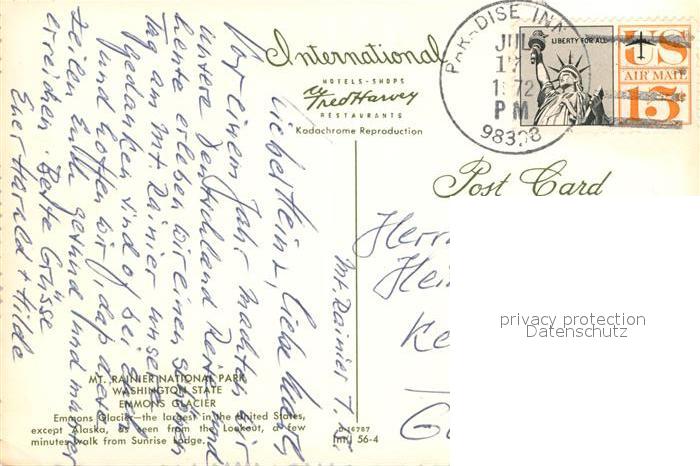 International
HOTELS - SHOPS
by Fred Harvey
RESTAURANTS
Kodachrome Reproduction
PARADISE INN
JUL
17
1972
PM
LIBERTY FOR ALL
US
AIR MAIL
15¢
Post Card
Mt. Rainier
Lieber Heinz, liebe
Vor einem Jahr machten wir
unsere Deutschland Reise und
heute erleben wir einen schönen
Tag am Mt Rainier unsere
Gedanken sind oft bei Euch
und hoffen wir, dass diese
Zeilen Euch gesund und munter
erreichen. Beste Grüsse
Euer Harald + Hilde
Herrn
privacy protection
Datenschutz
MT. RAINIER NATIONAL PARK
WASHINGTON STATE
EMMONS GLACIER
Emmons Glacier—the largest in the United States,
except Alaska, as seen from the Lookout, a few
minutes walk from Sunrise Lodge.
INKJ 56-4